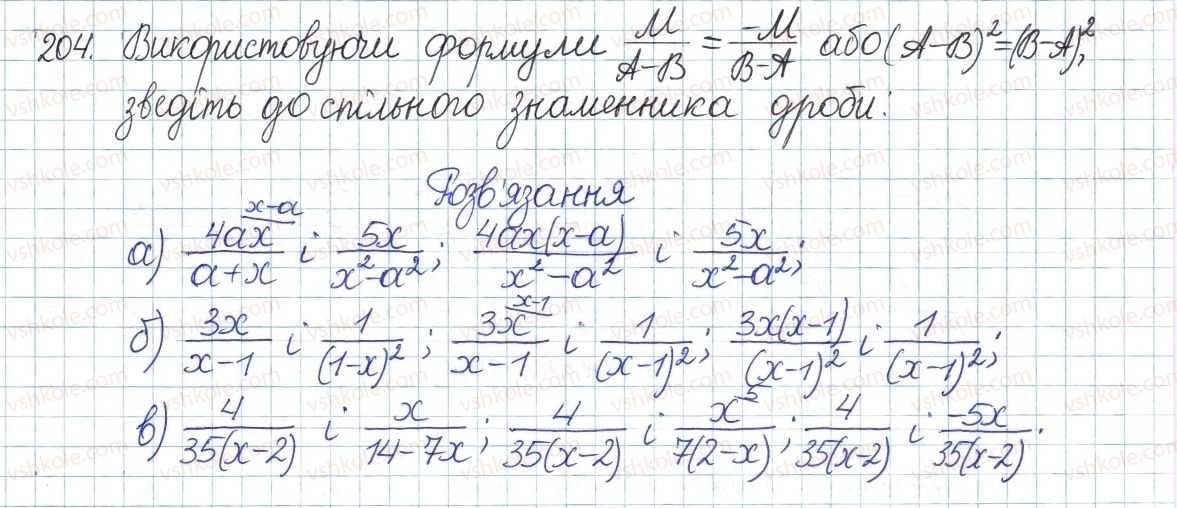 204. Використовуючи формули M/(A-B) = -M/(B-A) або (A-B)²=(B-A)²,
зведіть до спільного знаменника дроби:
Розв'язання
а) 4ax/(a+x) ^(x-a) і 5x/(x²-a²); 4ax(x-a)/(x²-a²) і 5x/(x²-a²);
б) 3x/(x-1) і 1/(1-x)²; 3x/(x-1) ^(x-1) і 1/(x-1)²; 3x(x-1)/(x-1)² і 1/(x-1)²;
в) 4/35(x-2) і x/(14-7x); 4/35(x-2) і x/7(2-x) ^(-5); 4/35(x-2) і -5x/35(x-2).
vshkole.com